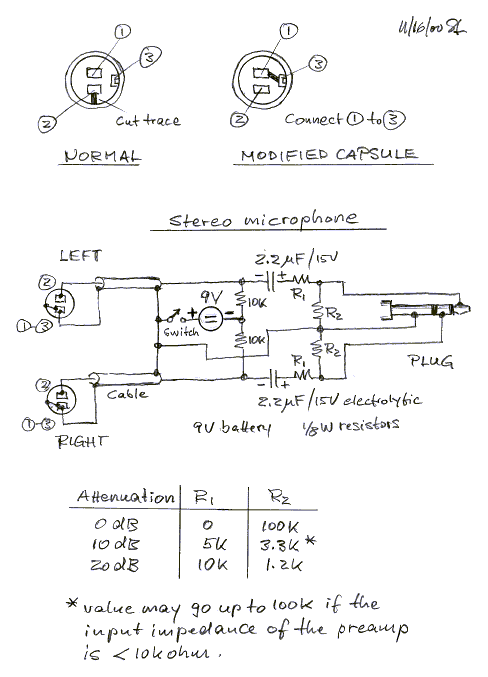 11/16/00 SL
① ③
② Cut trace
NORMAL
① ③
② Connect ① to ③
MODIFIED CAPSULE
Stereo microphone
LEFT
②
①-③
2.2µF/15V
- +
R₁
R₂
10K
9V
+ = -
Switch
10K
R₂
R₁
- +
2.2µF/15V electrolytic
PLUG
②
①-③
Cable
RIGHT
9V battery 1/8W resistors
Attenuation R₁ R₂
0 dB 0 100K
10 dB 5K 3.3K *
20 dB 10K 1.2K
* value may go up to 100k if the
input impedance of the preamp
is < 10kohm.